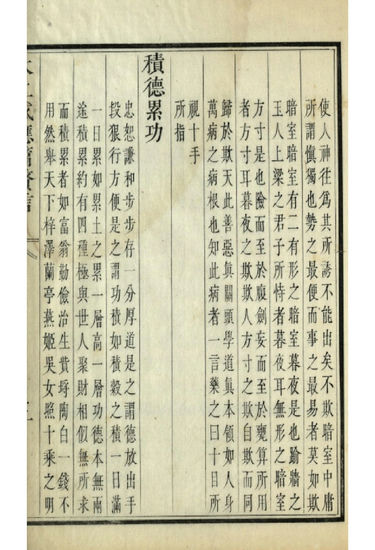 使人神往爲其所誘不能出矣不欺暗室中庸
所謂愼獨也勢之最便而事之最易者莫如欺
暗室暗室有二有形之暗室暮夜是也踰牆之
玉人上梁之君子所恃者暮夜耳無形之暗室
方寸是也險而至於腹劍妄而至於甕算所用
者方寸耳暮夜之欺欺人方寸之欺自欺而同
歸於欺天此善惡眞關頭學道眞本領如人身
萬病之病根也知此病者一言藥之曰十目所
視十手
所指
積德累功
忠恕謙和步步存一分厚道是之謂德放出手
投艱行方便是之謂功積如積穀之積一日滿
一日累如累土之累一層高一層功德本無兩
途積累約有四種極與世人聚財相似無所求
而積累者如富翁勤儉治生貲埒陶白一錢不
用然舉天下梓澤蘭亭燕姬吳女照十乘之明
太上感應篇贅言